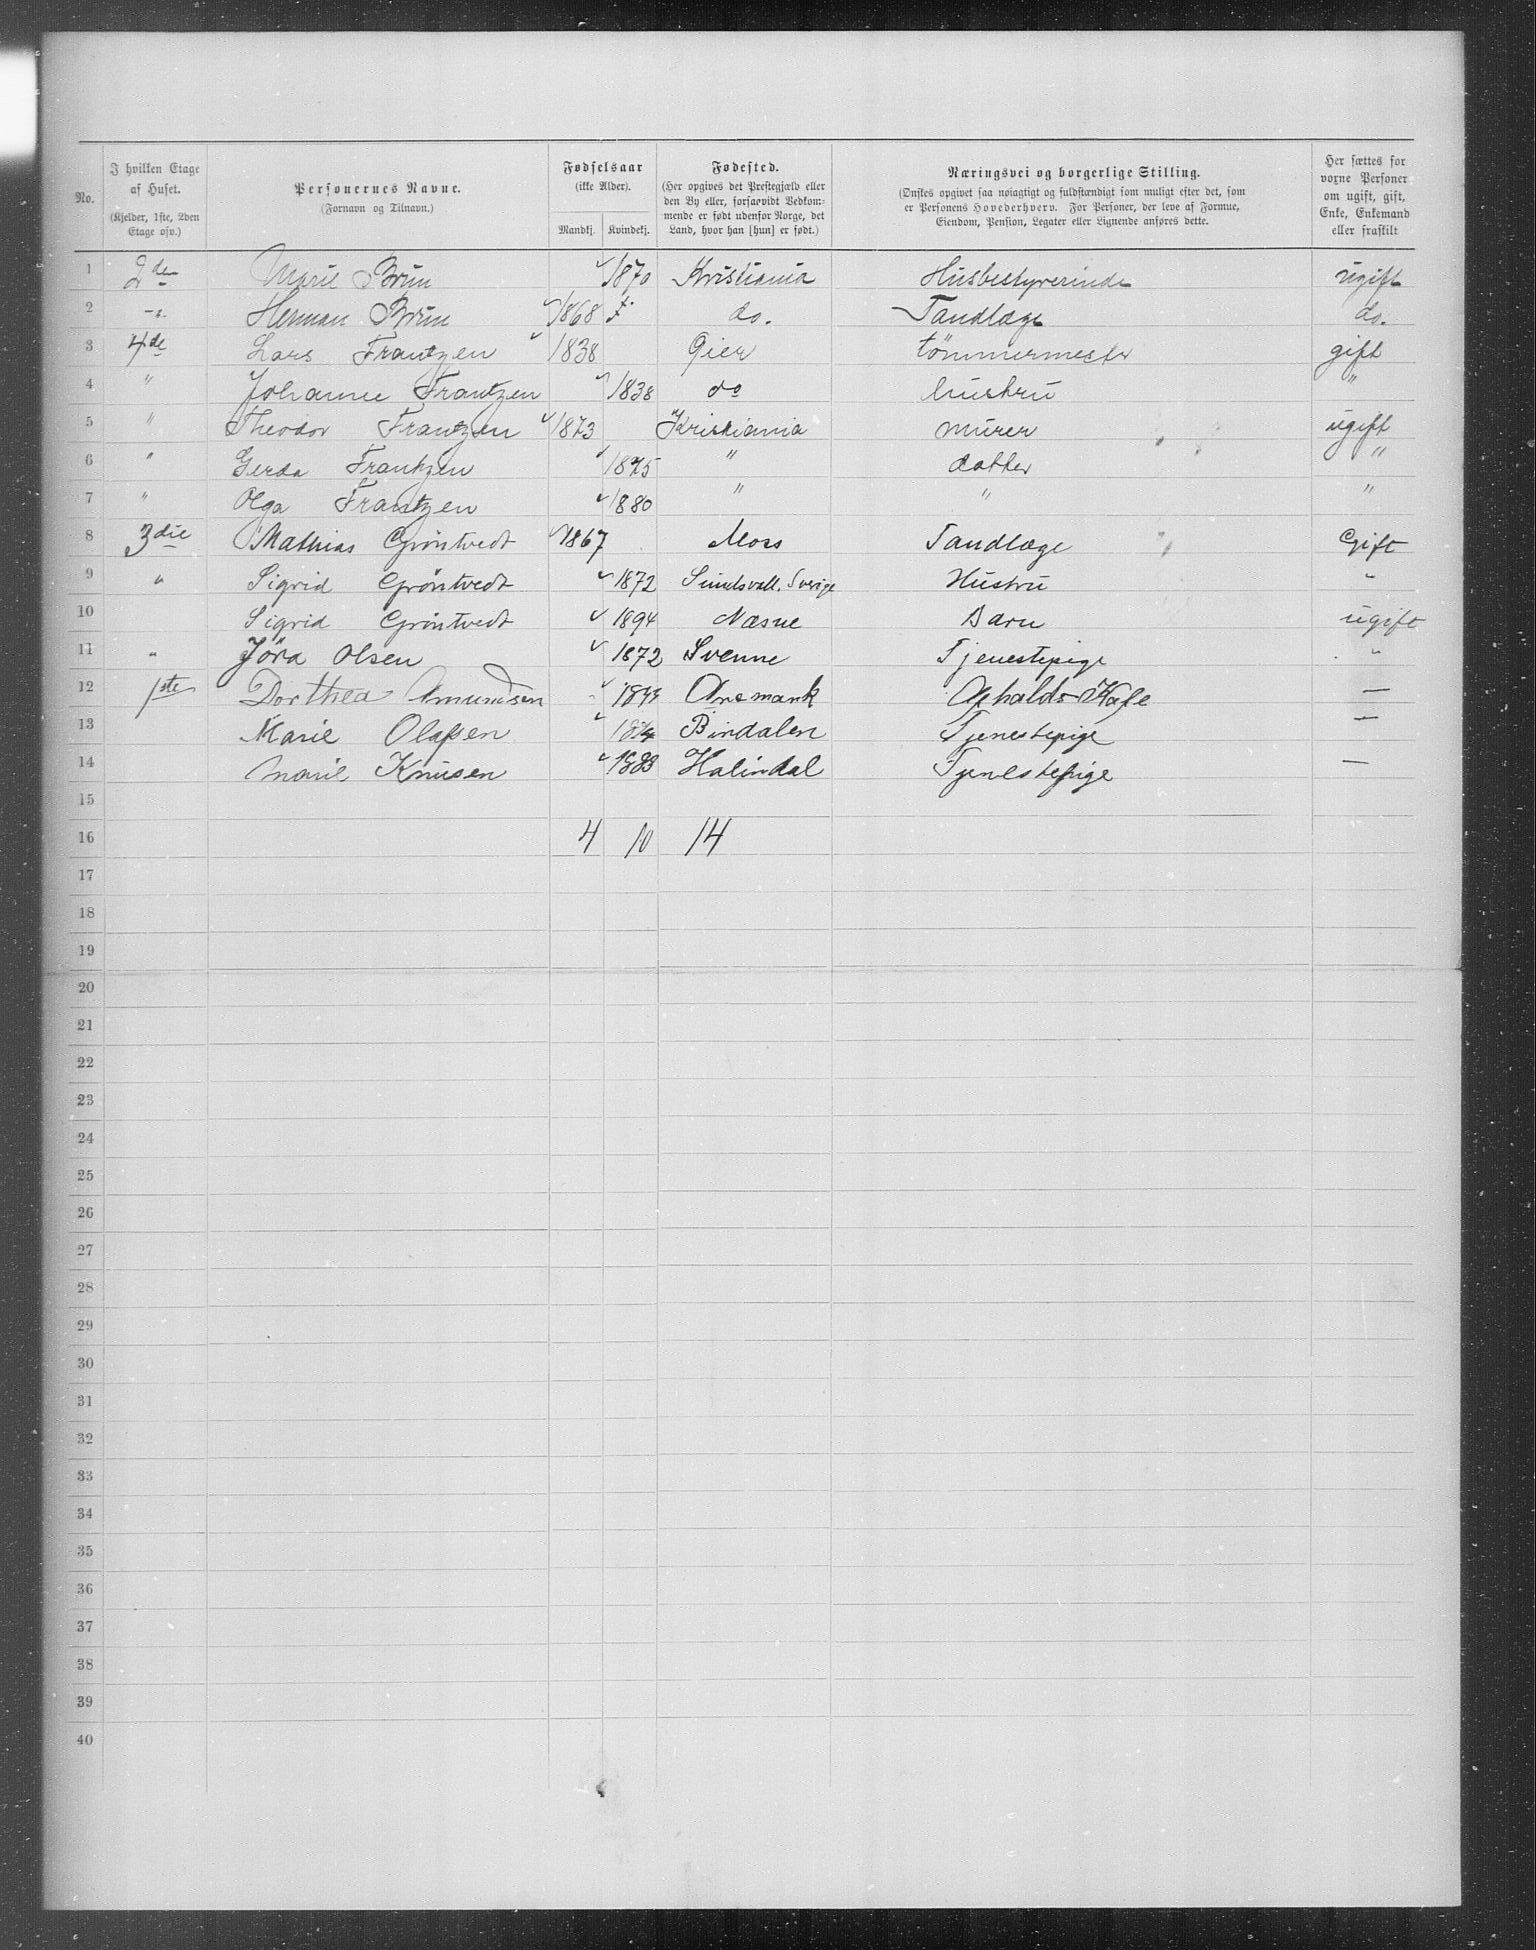 No. | I hvilken Etage af Huset. (Kjelder, 1ste, 2den Etage osv.) | Personernes Navne. (Fornavn og Tilnavn.) | Fødselsaar (ikke Alder). Mandkj. Kvindekj. | Fødested. (Her opgives det Prestegjæld eller den By eller, forsaavidt Vedkommende er født udenfor Norge, det Land, hvor han [hun] er født.) | Næringsvei og borgerlige Stilling. (Ønskes opgivet saa nøiagtigt og fuldstændigt som muligt efter det, som er Personens Hovederhverv. For Personer, der leve af Formue, Eiendom, Pension, Legater eller Lignende anføres dette. | Her sættes for voxne Personer om ugift, gift, Enke, Enkemand eller fraskilt
1 2den Marie Brun 1870 Kristiania Husbestyrerinde ugift
2 Herman Brun 1868 do. Tandlæge do.
3 4de Lars Frantzen 1838 tömmermester gift
4 " Johanne Frantzen 1838 do hustru "
5 " Theodor Frantzen 1873 Kristiania murer ugift
6 " Gerda Frantzen 1875 " datter "
7 " Olga Frantzen 1880 " " "
8 3die Mathias Gröntvedt 1867 Moss Tandlæge Gift
9 " Sigrid Gröntvedt 1872 Sundsvall. Sverige Hustru "
10 Sigrid Gröntvedt 1894 Næsne Barn ugift
11 " Jöra Olsen 1872 Svenne Tjenestepige "
12 1ste Dorthea Amundsen Aremark —
13 Marie Olafsen Bindalen Tjenestepige —
14 Marie Knusen 1883 Halindal Tjenestepige —
15
16 4 10 14
17
18
19
20
21
22
23
24
25
26
27
28
29
30
31
32
33
34
35
36
37
38
39
40